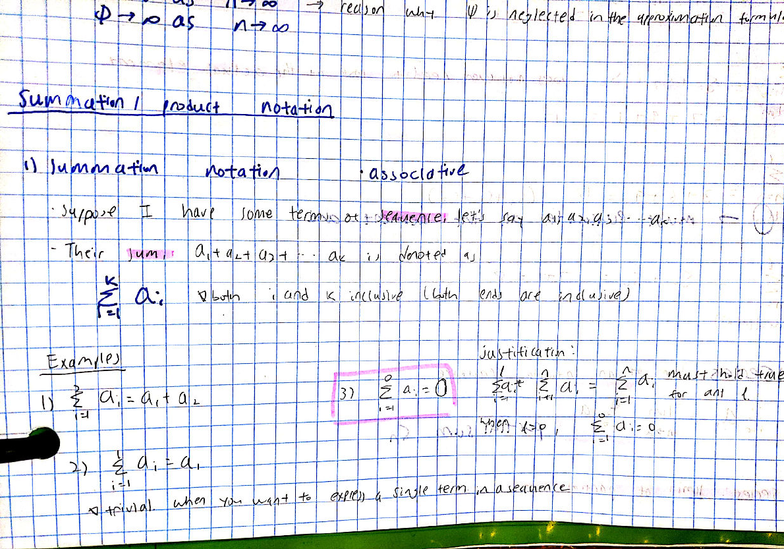 Φ → ∞ as n → ∞ → reason why Φ is neglected in the approximation formula
Summation / product notation
1) summation notation · associative
· Suppose I have some terms of sequence, let's say a₁, a₂, a₃, ... aₖ ...
- Their sum: a₁ + a₂ + a₃ + ... aₖ is denoted as
∑ᵢ₌₁ᵏ aᵢ both i and k inclusive (both ends are inclusive)
Examples
1) ∑ᵢ₌₁² aᵢ = a₁ + a₂
2) ∑ᵢ₌₁¹ aᵢ = a₁
trivial. when you want to express a single term in a sequence
3) ∑ᵢ₌₁⁰ aᵢ = 0
justification:
∑ᵢ₌₁ˡ aᵢ + ∑ aᵢ = ∑ᵢ₌₁ⁿ aᵢ must hold true
for any l
when l=0, ∑ᵢ₌₁⁰ aᵢ = 0